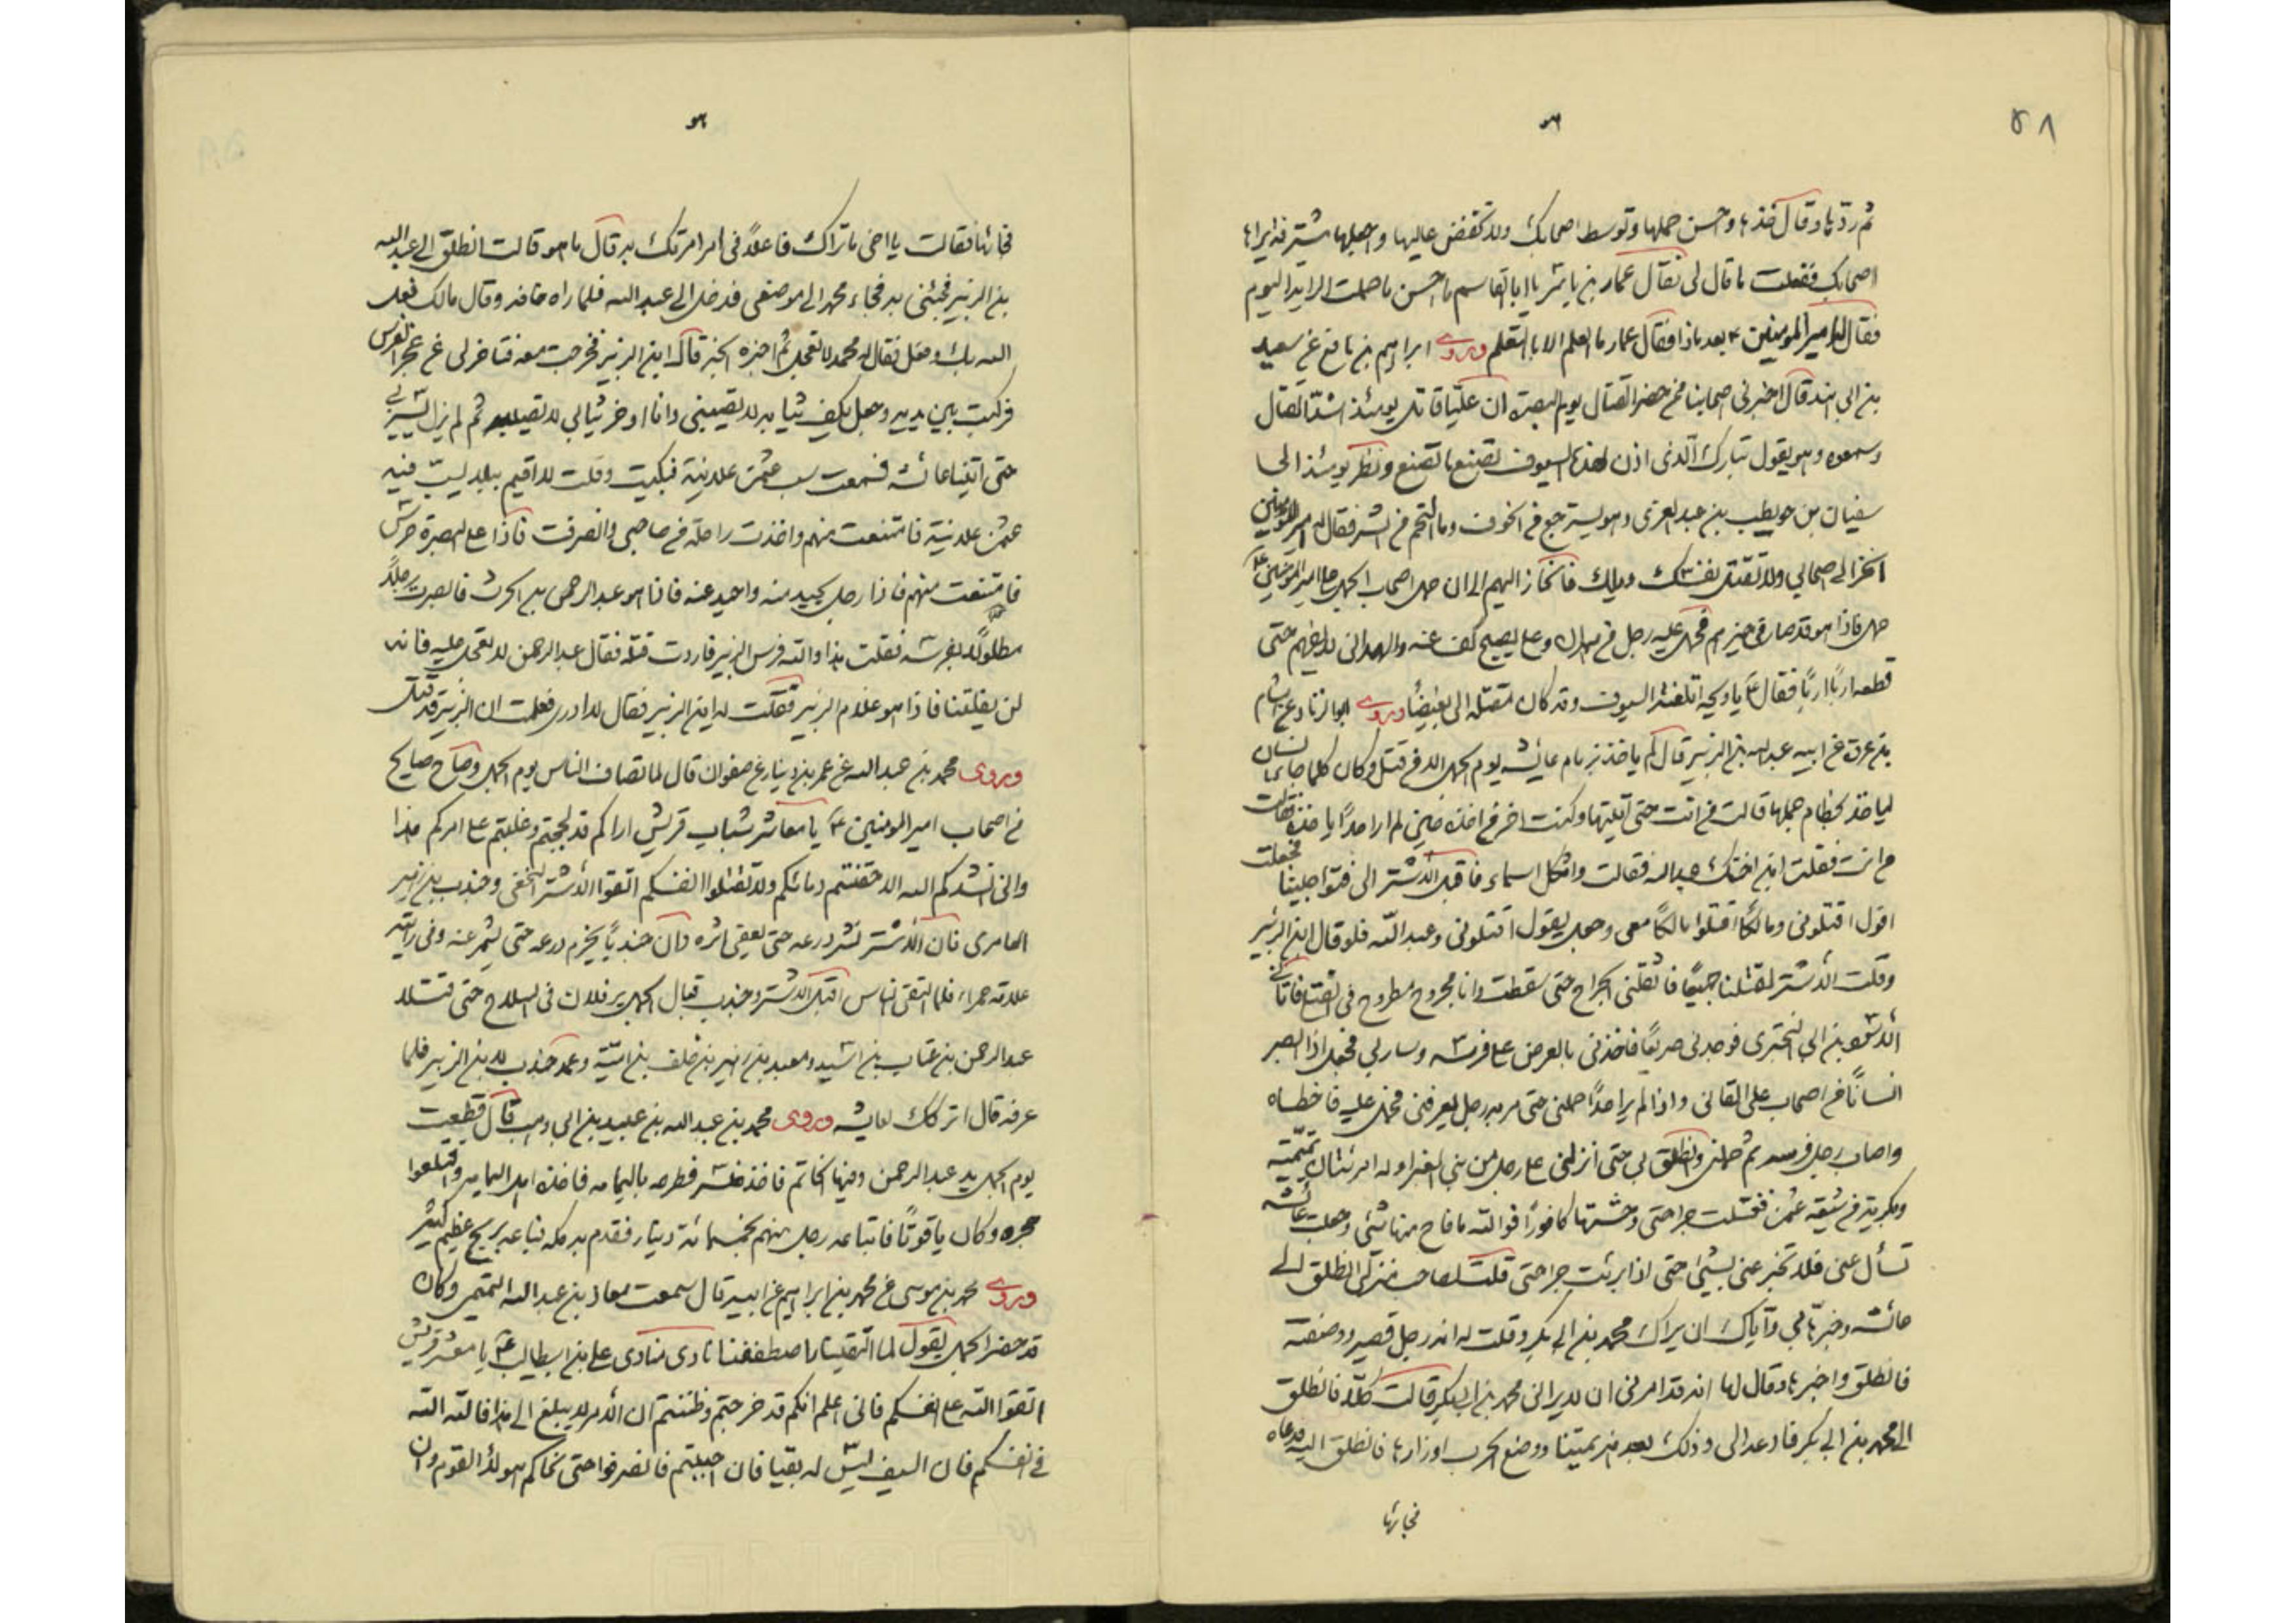 ٥٨
ثم ردها وقال خذها واحسن حملها وتوسط اصحابك ولا تخفض عاليها واجعلها مستشرفة يراها
اصحابك ففعلت ما قال لى فقال عمار بن ياسر يا ابا القاسم ما احسن ما حملت الراية اليوم
فقال له امير المومنين ع بعد ماذا فقال عمار ما العلم الا بالتعلم وروى ابراهيم بن نافع عن سعيد
بن ابى هند قال اخبرنى اصحابنا ممن حضر القتال يوم البصرة ان عليا قاتل يومئذ اشد القتال
وسمعوه وهو يقول تبارك الذى اذن لهذه السيوف تصنع ما تصنع ونظر يومئذ الى
سفيان بن حويطب بن عبد العزى وهو يسترجع من الخوف وما التحم من الشر فقال له امير المومنين
انحز الى اصحابى ولا تقتل نفسك ويلك فانحاز اليهم الى ان حمل اصحاب الجمل على امير المومنين
حمل فاذا هو قد صار فى حيزهم فحمل عليه رجل من همدان وعلى يصيح كف عنه والهمدانى لا يفهم حتى
قطعه اربا اربا فقال ع يا ويحه اتلفته السيوف وقد كان مقتله الى بغيضا وروى ابو الزناد عن هشام
بن عروة عن ابيه عبد الله بن الزبير قال لم ياخذ بزمام عايشه يوم الجمل الا من قتل وكان كلما جاء انسان
لياخذ بخطام جملها قالت من انت حتى اتيتها وكنت اخر من اخذه حين لم ار احدا ياخذه فقالت
من انت فقلت ابن اختك عبد الله فقالت واثكل اسماء فاقبل الاشتر الى فتواجلينا فجعلت
اقول اقتلونى ومالكا اقتلوا مالكا معى وجعل يقول اقتلونى وعبد الله فلو قال ابن الزبير
وقلت الاشتر لقتلنا جميعا فاثقلنى الجراح حتى سقطت وانا مجروح مطروح فى القتلى فاتانى
الاسود بن ابى البخترى فوجدنى صريعا فاخذنى بالعرض على فرسه وسار بى فجعل اذا ابصر
انسانا من اصحاب على القانى واذا لم ير احدا حملنى حتى مر به رجل يعرفنى فحمل عليه فاخطاه
واصاب رجل فرسه ثم حملنى وانطلق بى حتى انزلنى على رجل من بنى الغبراء وله امرئتان تميمية
وبكرية من شيعة عثمن فغسلت جراحتى وحشتها كافورا فوالله ما فاح منها شئ وجعلت عائشه
تسأل عنى فلا تخبر عنى بشئ حتى اذا برئت جراحتى قلت لصاحب منزلى انطلق الى
عائشه وخبرها بى واياك ان يراك محمد بن ابى بكر وقلت له انه رجل قصير ووصفته
فانطلق واخبرها وقال لها انه قد امرنى ان لا يرانى محمد بن ابى بكر قالت كلا فانطلق
الى محمد بن ابى بكر فادعه الى وذلك بعد هزيمتنا ووضع الحرب اوزارها فانطلق اليه فدعاه
فجائها
فجائها فقالت يا اخى ما تراك فاعلا فى امر امرتك به قال ما هو قالت انطلق الى عبد الله
بن الزبير فجئنى به فجاء محمد الى موضعى فدخل الى عبد الله فلما راه خافه وقال مالك فعل
الله بك وفعل فقال له محمد لا تعجل ثم اخبره الخبر قال ابن الزبير فخرجت معه فتاخر لى عن عجز الفرس
فركبت بين يديه وجعل يكف ثيابه لا تصيبنى وانا اوخر ثيابى لا تصيبه ثم لم يزل يسير بى
حتى اتينا عائشه فسمعت سب عثمن علانية فبكيت وقلت لا اقيم ببلد يسب فيه
عثمن علانية فامتنعت منهم واخذت راحلة من صاحبى وانصرفت فاذا على البصرة حرس
فامتنعت منهم فاذا رجل يحيد منه واحيد عنه فاذا هو عبد الرحمن بن الحرث فابصرت رجلا
فقلت هذا والله فرس الزبير فاردت قتله فقال عبد الرحمن لا تعجل عليه فانه
لن يفلتنا فاذا هو غلام الزبير فقلت له اين الزبير فقال لا ادرى فعلمت ان الزبير قد قتل
وروى محمد بن عبد الله عن عمر بن دينار عن صفوان قال لما تصاف الناس يوم الجمل وصاح صايح
من اصحاب امير المومنين ع يا معاشر شباب قريش اراكم قد لججتم وغلبتم على امركم هذا
وانى انشدكم الله الا حقنتم دمائكم ولا تقتلوا انفسكم اتقوا الاشتر النخعى وجندب بن زهير
العامرى فان الاشتر نشر درعه حتى يعفى اثره وان جندبا يخرم درعه حتى يشمر عنه وفى رايته
علامة حمراء فلما التقى الناس اقبل الاشتر وجندب قبال الجمل يرفلان فى السلاح حتى قتلا
عبد الرحمن بن عتاب بن اسيد ومعبد بن زهير بن خلف بن امية وعمد جندب لابن الزبير فلما
عرفه قال اتركك لعايشه وروى محمد بن عبد الله بن عبيد بن ابى وهب قال قطعت
يوم الجمل يد عبد الرحمن وفيها الخاتم فاخذه نسر فطرحه باليمامه فاخذه اهل اليمامه واقتلعوا
حجره وكان ياقوتا فابتاعه رجل منهم بخمسمائة دينار فقدم به مكه فباعه بربح عظيم كثير
وروى محمد بن موسى عن محمد بن ابراهيم عن ابيه قال سمعت معاذ بن عبد الله التميمى وكان
قد حضر الجمل يقول لما التقينا واصطففنا نادى منادى على بن ابيطالب ع يا معشر قريش
اتقوا الله على انفسكم فانى اعلم انكم قد خرجتم وظننتم ان الامر لا يبلغ الى هذا فالله الله
فى انفسكم فان السيف ليس له بقيا فان احببتم فانصرفوا حتى نحاكم هولاء القوم وان